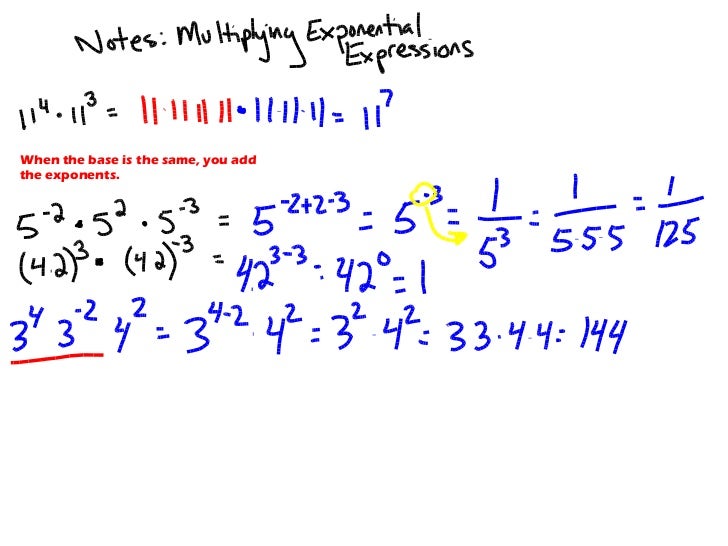 Notes: Multiplying Exponential
Expressions
11⁴ · 11³ = 11·11·11·11·11·11·11 = 11⁷
When the base is the same, you add
the exponents.
5⁻² · 5² · 5⁻³ = 5⁻²⁺²⁻³ = 5⁻³ = 1/5³ = 1/5·5·5 = 1/125
(4.2)³ · (4.2)⁻³ = 4.2³⁻³ = 4.2⁰ = 1
3⁴ 3⁻² 4² = 3⁴⁻² · 4² = 3² · 4² = 3·3·4·4 = 144